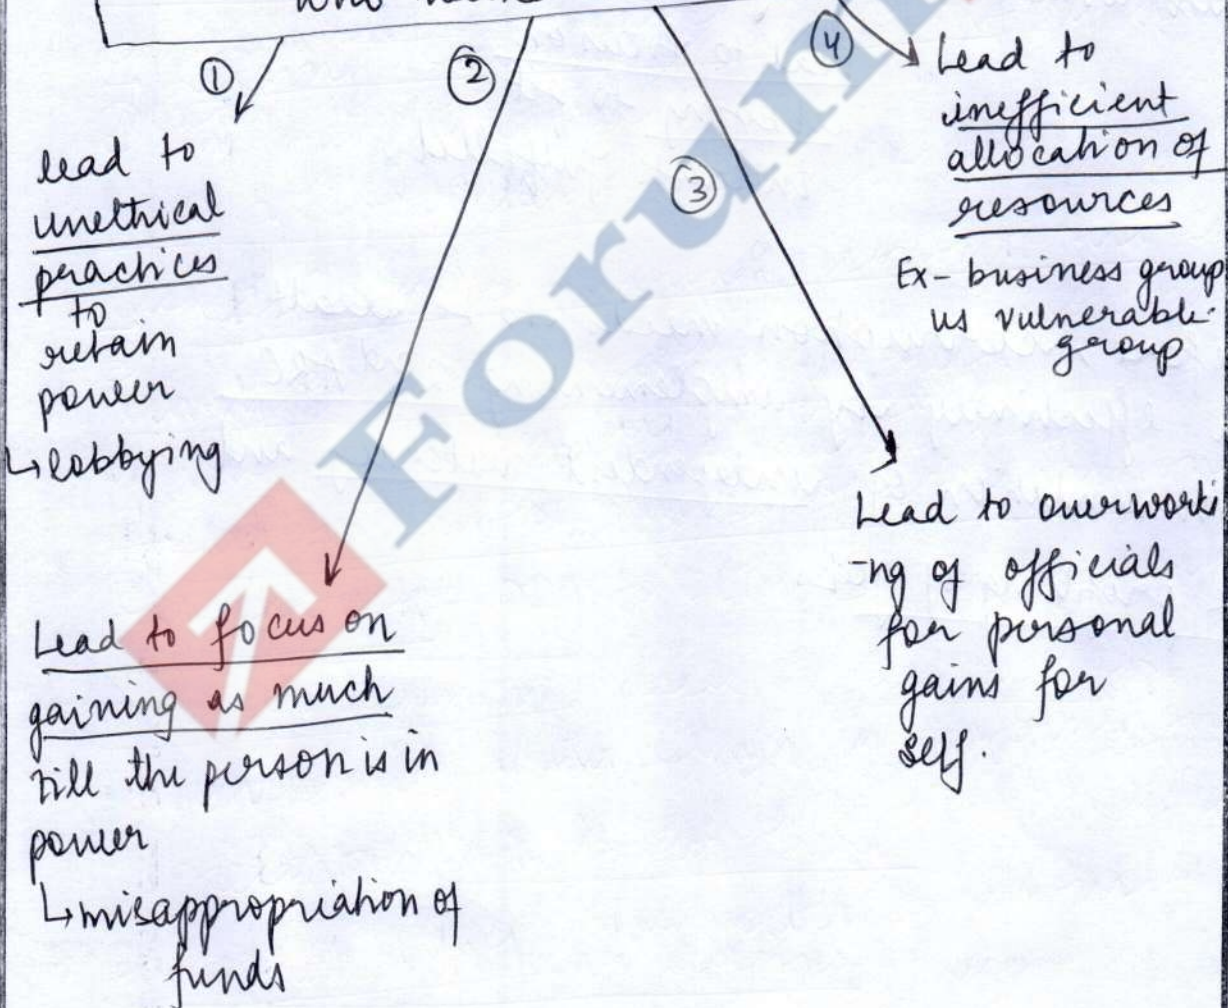 ①
lead to
unethical
practices
to
retain
power
↳ lobbying
②
Lead to focus on
gaining as much
till the person is in
power
↳ misappropriation of
funds
③
Lead to overworki
-ng of officials
for personal
gains for
self.
④
Lead to
inefficient
allocation of
resources
Ex- business group
vs vulnerable
group
Forum